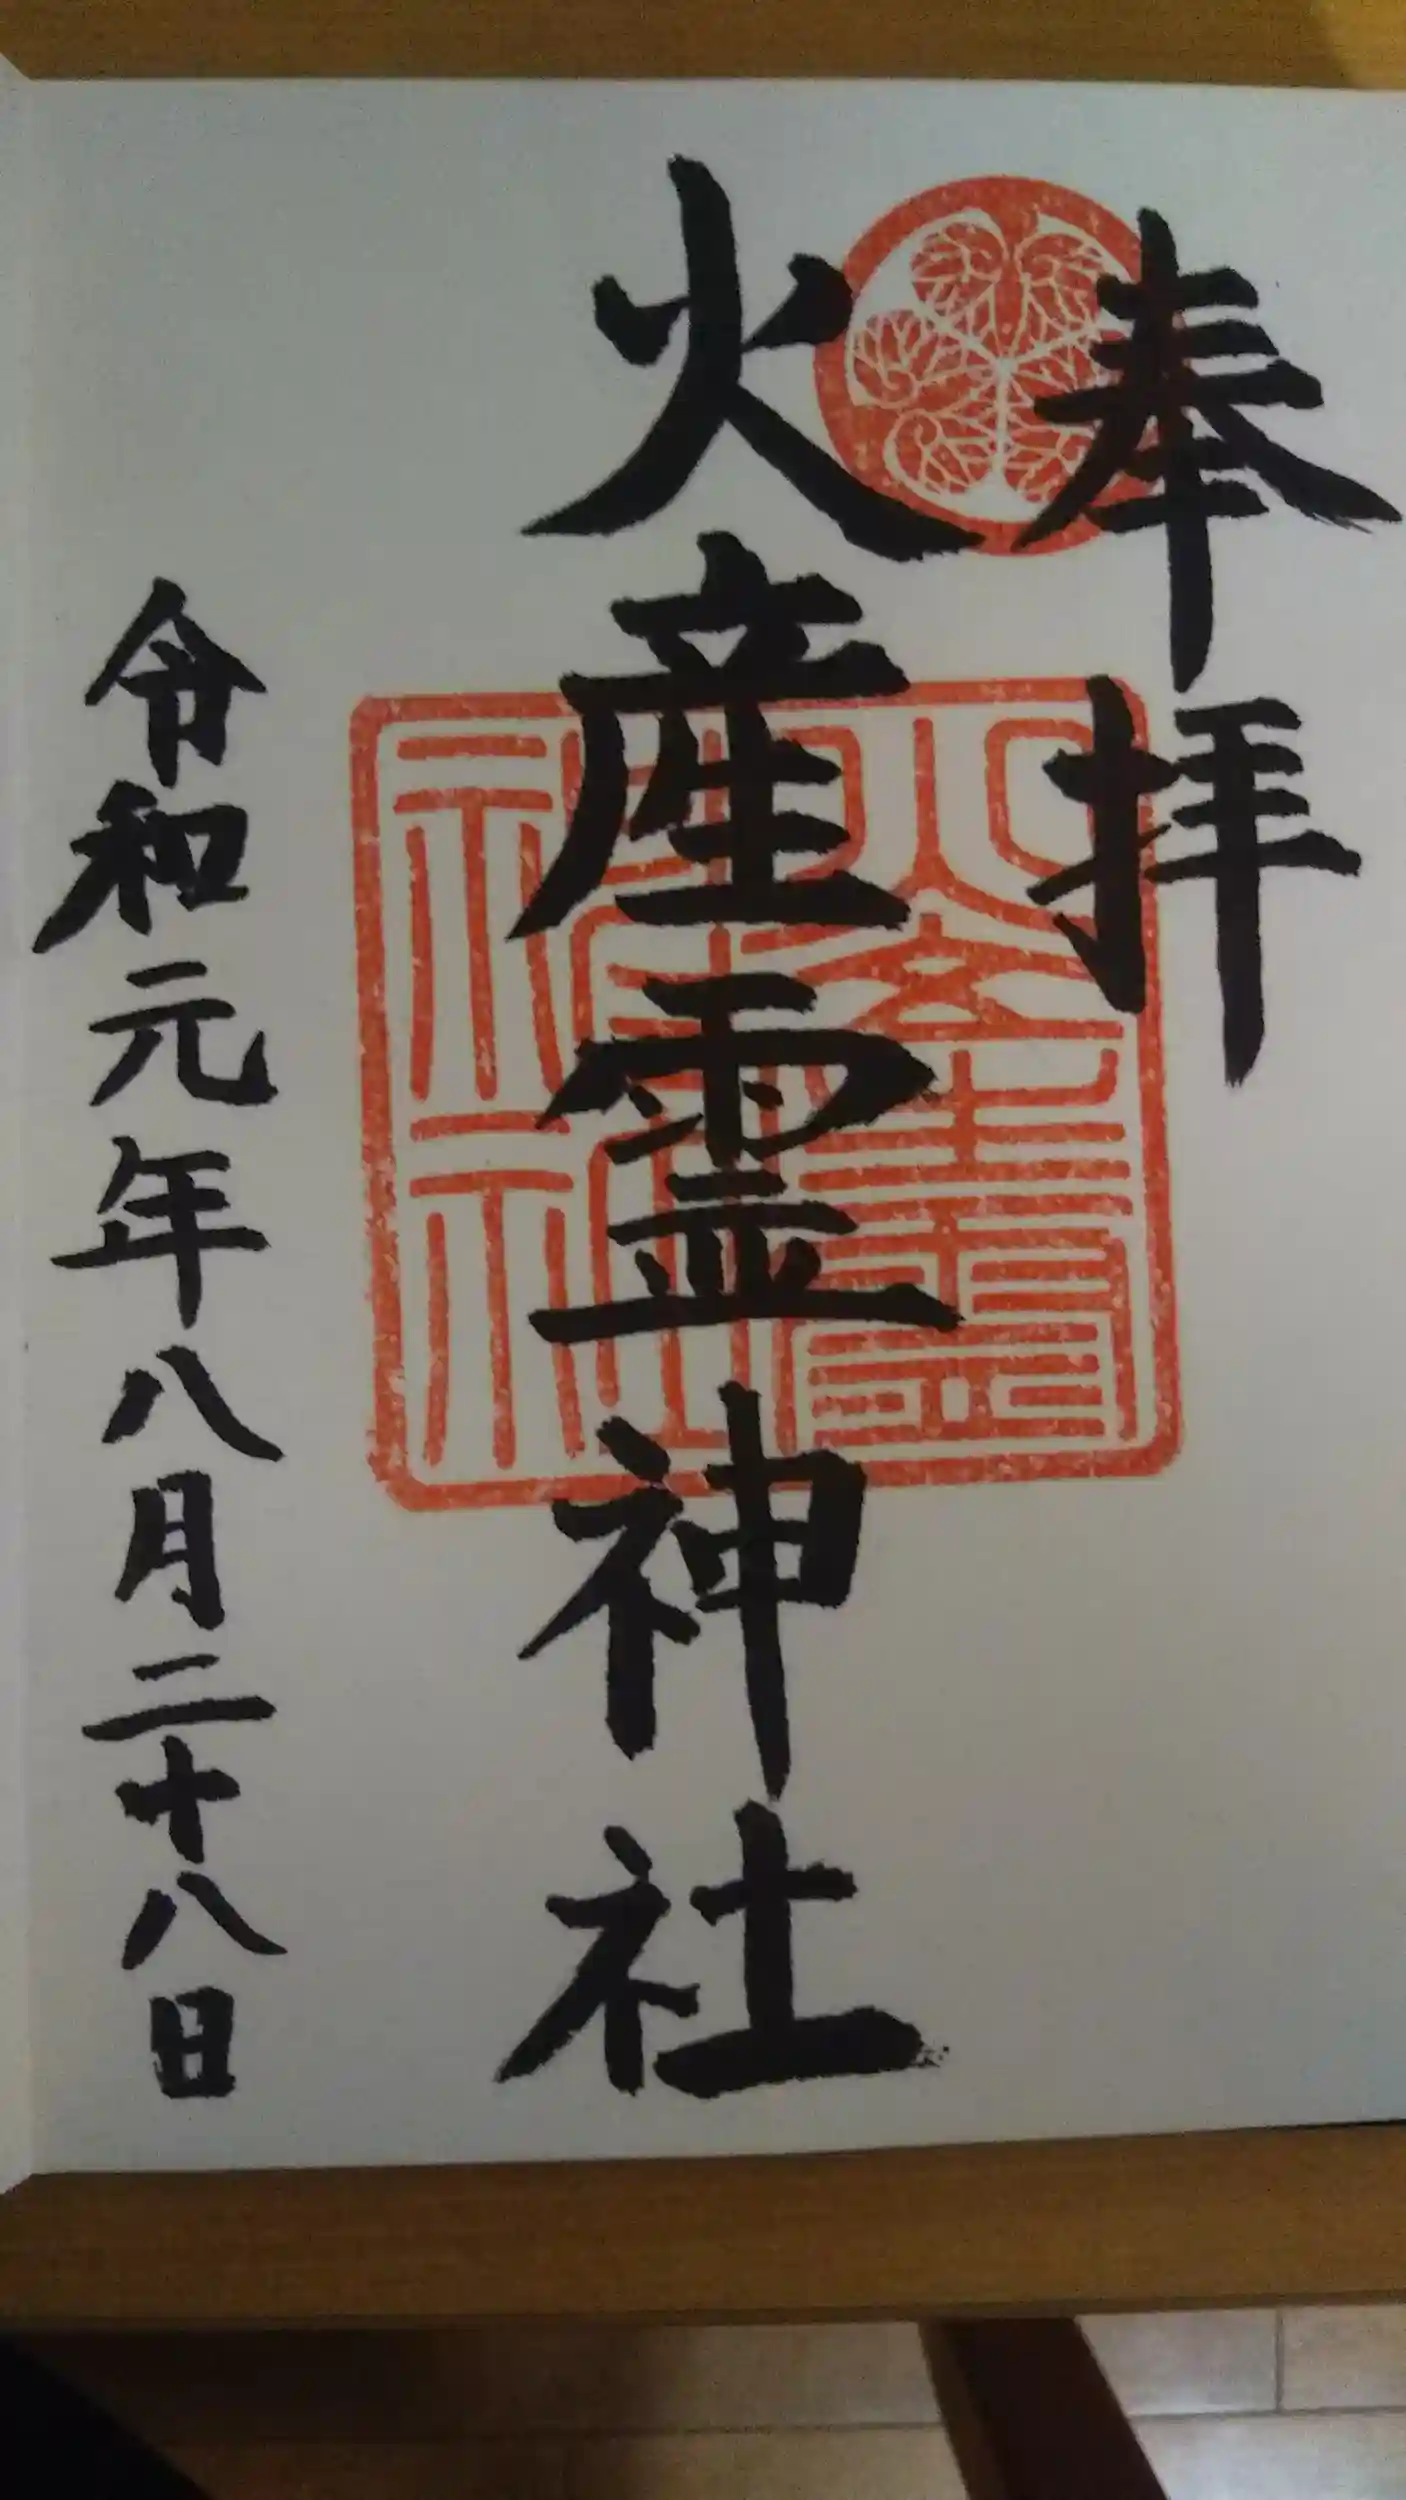 奉拝
火産霊神社
火産霊神社
令和元年八月二十八日